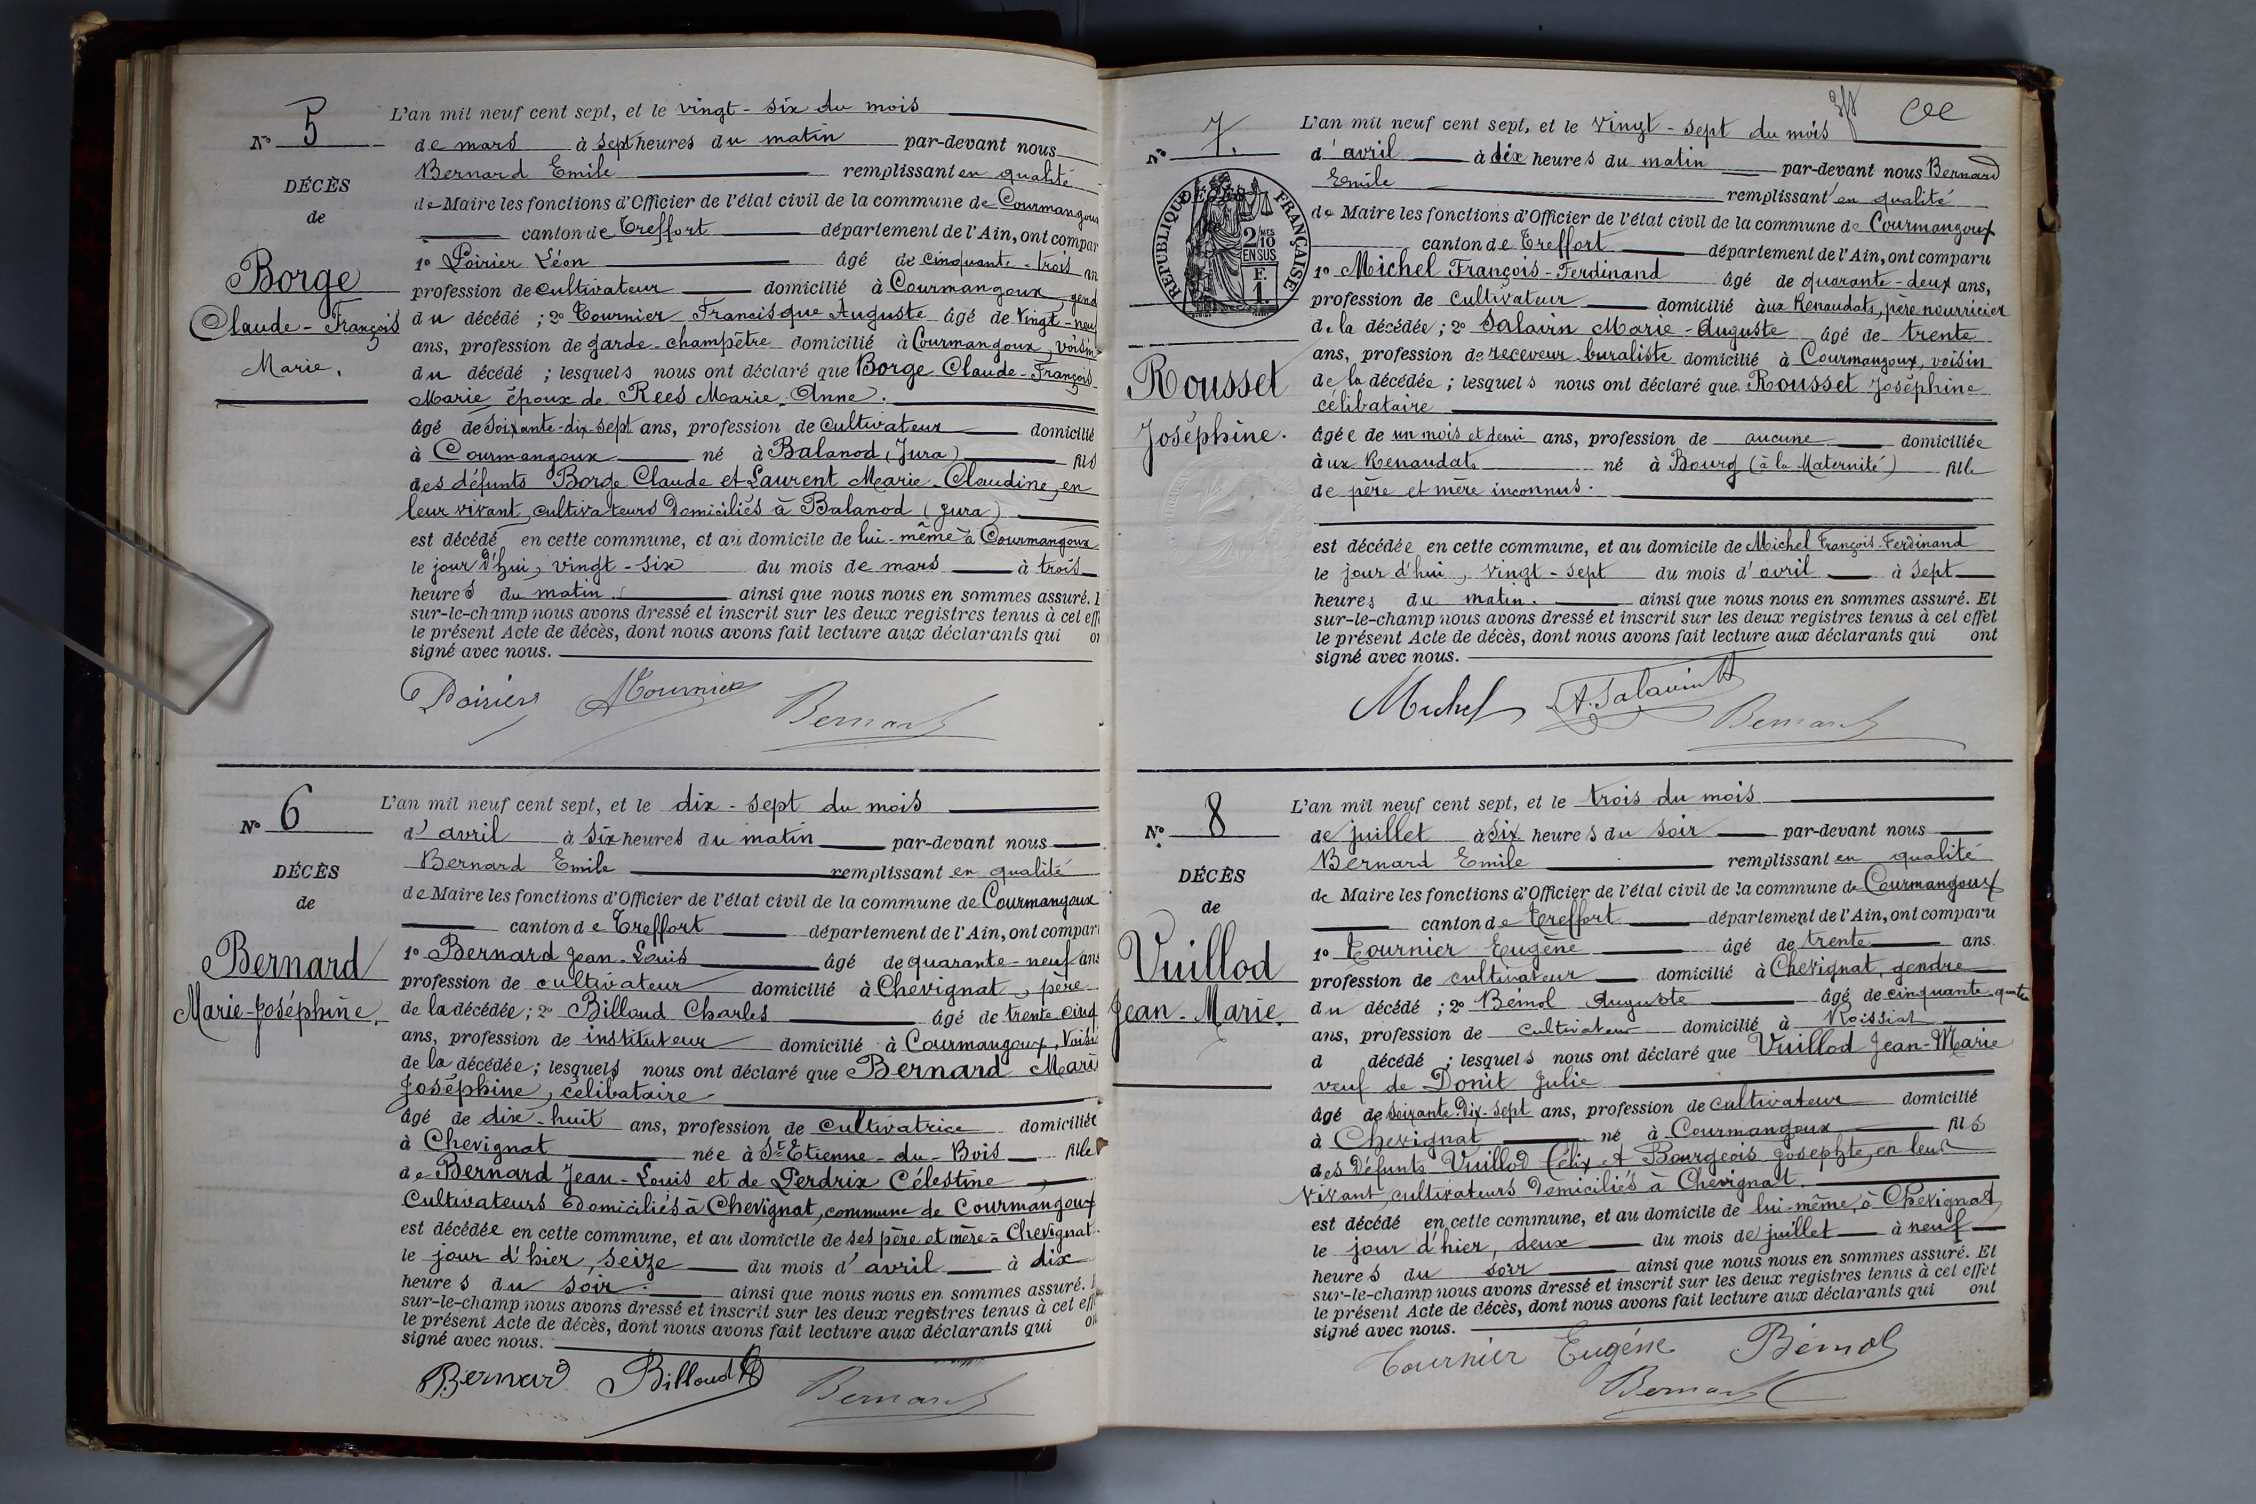 N° 5
DÉCÈS
de
Borge
Claude-François
Marie.
L'an mil neuf cent sept, et le vingt-six du mois
de mars à sept heures du matin par-devant nous
Bernard Emile remplissant en qualité
de Maire les fonctions d'Officier de l'état civil de la commune de Courmangoux
canton de Treffort département de l'Ain, ont compar
1° Poirier Léon âgé de cinquante-trois an
profession de cultivateur domicilié à Courmangoux, gend
du décédé ; 2° Tournier Francisque Auguste âgé de Vingt-neuf
ans, profession de garde-champêtre domicilié à Courmangoux, voisin
du décédé ; lesquels nous ont déclaré que Borge Claude-François
Marie époux de Rees Marie-Anne.
âgé de soixante-dix-sept ans, profession de cultivateur domicilié
à Courmangoux né à Balanod (Jura) fils
des défunts Borge Claude et Laurent Marie-Claudine, en
leur vivant, cultivateurs domiciliés à Balanod (Jura)
est décédé en cette commune, et au domicile de lui-même à Courmangoux
le jour d'hui, vingt-six du mois de mars à trois
heures du matin. ainsi que nous nous en sommes assuré. E
sur-le-champ nous avons dressé et inscrit sur les deux registres tenus à cet eff
le présent Acte de décès, dont nous avons fait lecture aux déclarants qui on
signé avec nous.
Poirier ATournier Bernard
N° 6
DÉCÈS
de
Bernard
Marie-Joséphine.
L'an mil neuf cent sept, et le dix-sept du mois
d'avril à six heures du matin par-devant nous
Bernard Emile remplissant en qualité
de Maire les fonctions d'Officier de l'état civil de la commune de Courmangoux
canton de Treffort département de l'Ain, ont compar
1° Bernard Jean-Louis âgé de quarante-neuf ans
profession de cultivateur domicilié à Chevignat, père
de la décédée ; 2° Billoud Charles âgé de trente-cinq
ans, profession de instituteur domicilié à Courmangoux, Voisi
de la décédée ; lesquels nous ont déclaré que Bernard Marie
Joséphine, célibataire
âgé de dix-huit ans, profession de cultivatrice domiciliée
à Chevignat née à St Etienne-du-Bois fille
de Bernard Jean-Louis et de Perdrix Célestine,
Cultivateurs domiciliés à Chevignat, commune de Courmangoux
est décédée en cette commune, et au domicile de ses père et mère à Chevignat.
le jour d'hier, seize du mois d'avril à dix
heures du soir. ainsi que nous nous en sommes assuré.
sur-le-champ nous avons dressé et inscrit sur les deux registres tenus à cet eff
le présent Acte de décès, dont nous avons fait lecture aux déclarants qui on
signé avec nous.
Bernard Billoud Bernard
N° 7.
DÉCÈS
RÉPUBLIQUE FRANÇAISE
2/10 MES
EN SUS
F.
1.
Rousset
Joséphine.
L'an mil neuf cent sept, et le vingt-sept du mois
d'avril à dix heures du matin par-devant nous Bernard
Emile remplissant en qualité
de Maire les fonctions d'Officier de l'état civil de la commune de Courmangoux
canton de Treffort département de l'Ain, ont comparu
1° Michel François-Ferdinand âgé de quarante-deux ans,
profession de cultivateur domicilié aux Renaudats, père nourricier
de la décédée ; 2° Salavin Marie-Auguste âgé de trente
ans, profession de receveur buraliste domicilié à Courmangoux, voisin
de la décédée ; lesquels nous ont déclaré que Rousset Joséphine
célibataire
âgée de un mois et demi ans, profession de aucune domiciliée
aux Renaudats né à Bourg (à la Maternité) fille
de père et mère inconnus.
est décédée en cette commune, et au domicile de Michel François-Ferdinand
le jour d'hui, vingt-sept du mois d'avril à sept
heures du matin. ainsi que nous nous en sommes assuré. Et
sur-le-champ nous avons dressé et inscrit sur les deux registres tenus à cet effet
le présent Acte de décès, dont nous avons fait lecture aux déclarants qui ont
signé avec nous.
Michel A. Salavin Bernard
N° 8
DÉCÈS
de
Vuillod
Jean-Marie.
L'an mil neuf cent sept, et le trois du mois
de juillet à six heures du soir par-devant nous
Bernard Emile remplissant en qualité
de Maire les fonctions d'Officier de l'état civil de la commune de Courmangoux
canton de Treffort département de l'Ain, ont comparu
1° Tournier Eugène âgé de trente ans.
profession de cultivateur domicilié à Chevignat, gendre
du décédé ; 2° Bémol Auguste âgé de cinquante quatre
ans, profession de cultivateur domicilié à Roissiat
d décédé ; lesquels nous ont déclaré que Vuillod Jean-Marie
veuf de Donit Julie
âgé de soixante-Dix-sept ans, profession de cultivateur domicilié
à Chevignat né à Courmangoux fils
des Défunts Vuillod Félix et Bourgeois Josephte, en leur
vivant, cultivateurs Domiciliés à Chevignat.
est décédé en cette commune, et au domicile de lui-même, à Chevignat
le jour d'hier, deux du mois de juillet à neuf
heures du soir ainsi que nous nous en sommes assuré. Et
sur-le-champ nous avons dressé et inscrit sur les deux registres tenus à cet effet
le présent Acte de décès, dont nous avons fait lecture aux déclarants qui ont
signé avec nous.
Tournier Eugène Bémol
Bernard